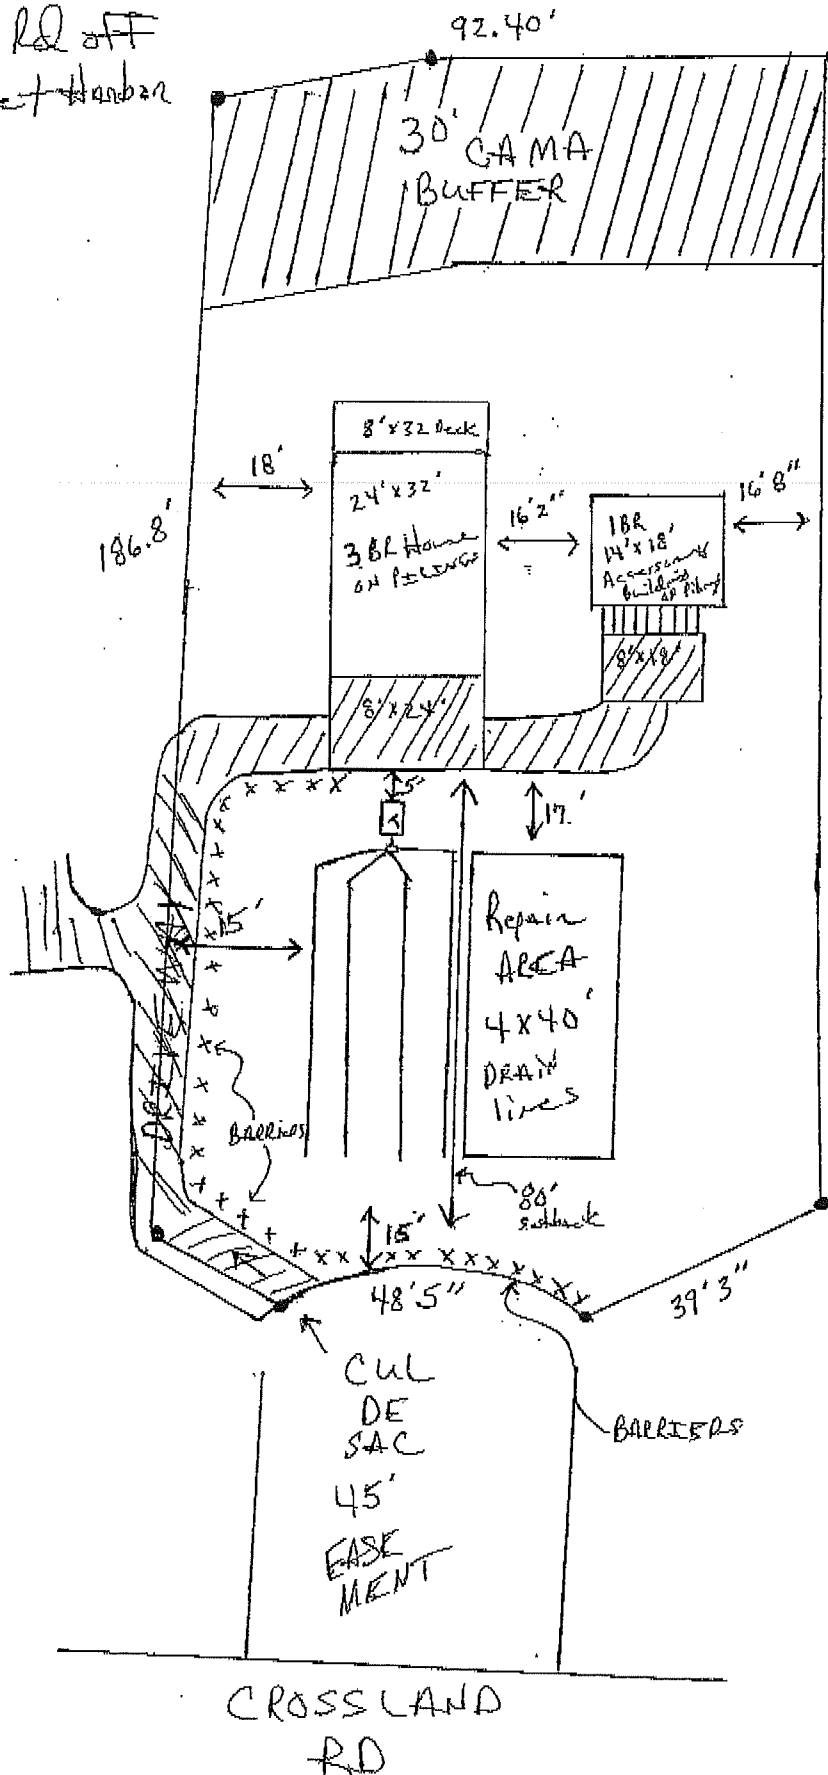 Rd off
Harbor
92.40'
30' CAMA
BUFFER
8'x32 Deck
18'
24'x32'
3 BR House
ON PILINGS
16'2"
1BR
14'x18'
Accessory
Building
on Pilings
16'8"
186.8'
8'x18'
8'x24'
5'
T
17.'
15'
Repair
AREA
4x40'
DRAIN
lines
BARRIERS
80'
setback
15'
48'5"
39'3"
CUL
DE
SAC
45'
EASE
MENT
BARRIERS
CROSSLAND
RD